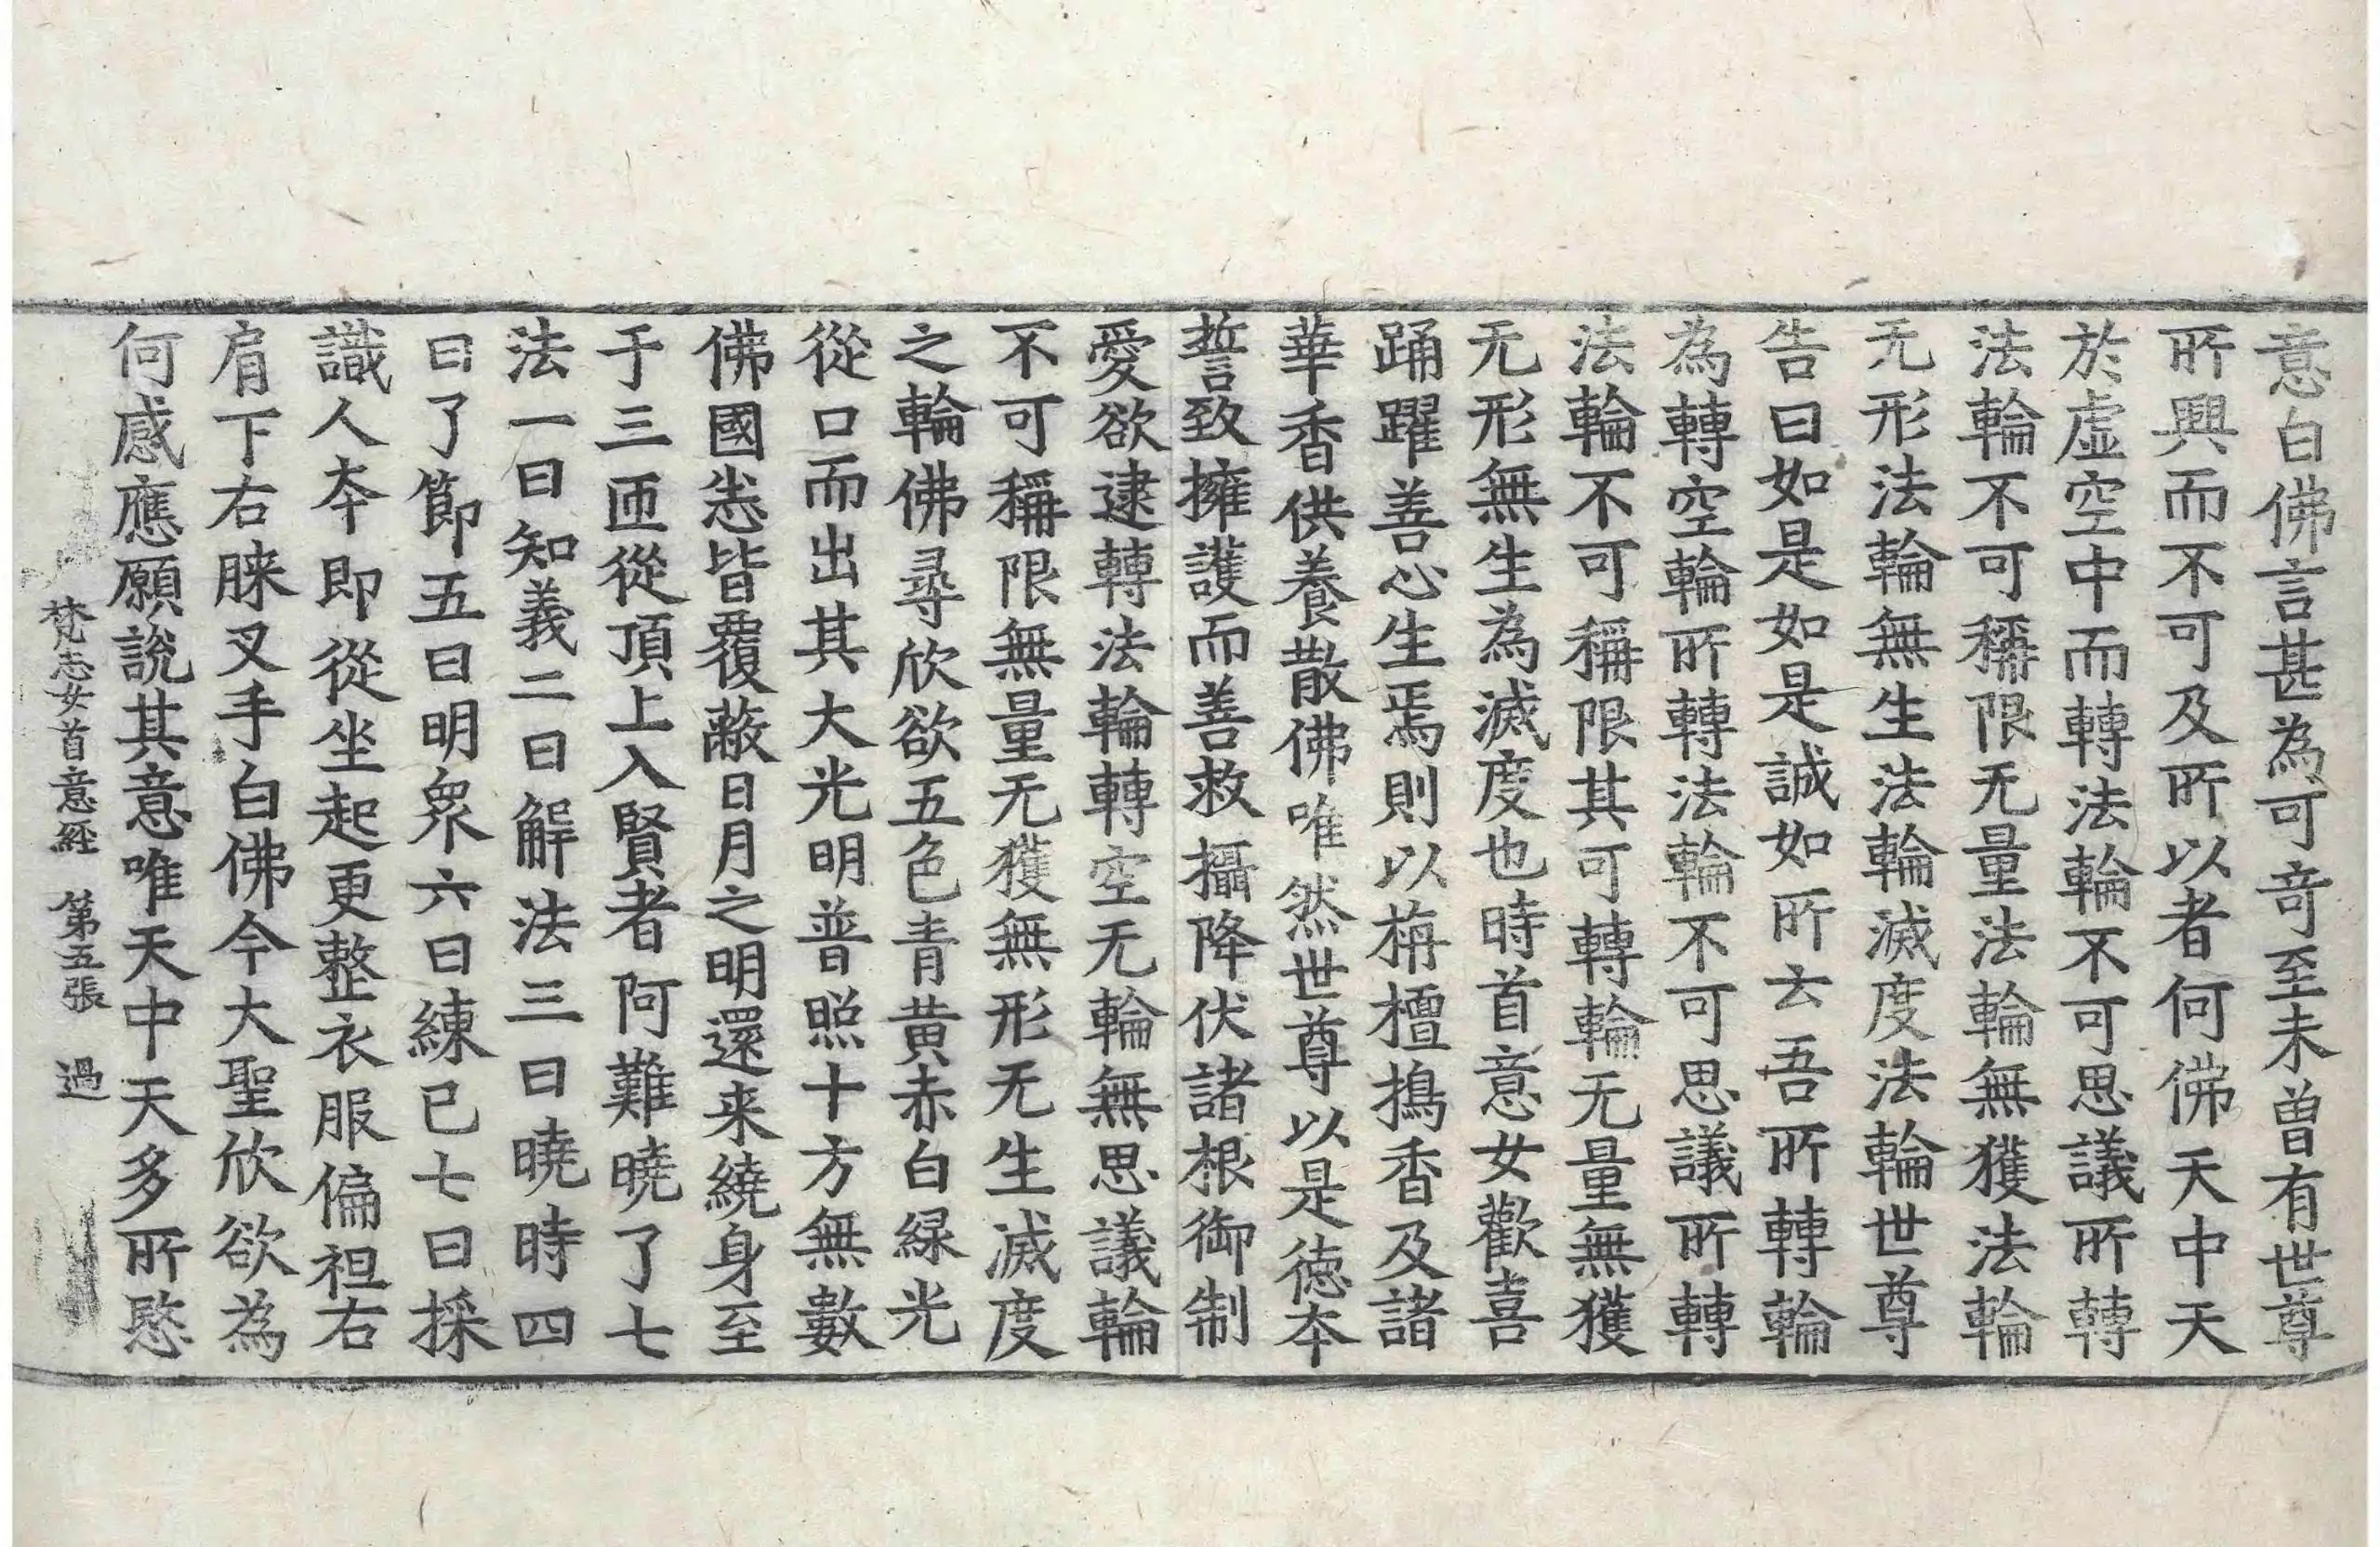 意白佛言甚為可奇至未曾有世尊
所興而不可及所以者何佛天中天
於虛空中而轉法輪不可思議所轉
法輪不可稱限无量法輪無獲法輪
无形法輪無生法輪滅度法輪世尊
告曰如是如是誠如所云吾所轉輪
為轉空輪所轉法輪不可思議所轉
法輪不可稱限其可轉輪无量無獲
无形無生為滅度也時首意女歡喜
踊躍善心生焉則以栴檀擣香及諸
華香供養散佛唯然世尊以是德本
誓致擁護而善救攝降伏諸根御制
愛欲逮轉法輪轉空无輪無思議輪
不可稱限無量无獲無形无生滅度
之輪佛尋欣欲五色青黃赤白綠光
從口而出其大光明普照十方無數
佛國悉皆覆蔽日月之明還来繞身至
于三匝從頂上入賢者阿難曉了七
法一曰知義二曰解法三曰曉時四
曰了節五曰明眾六曰練已七曰採
識人本即從坐起更整衣服偏袒右
肩下右膝叉手白佛今大聖欣欲為
何感應願說其意唯天中天多所愍
梵志女首意經　第五張　過